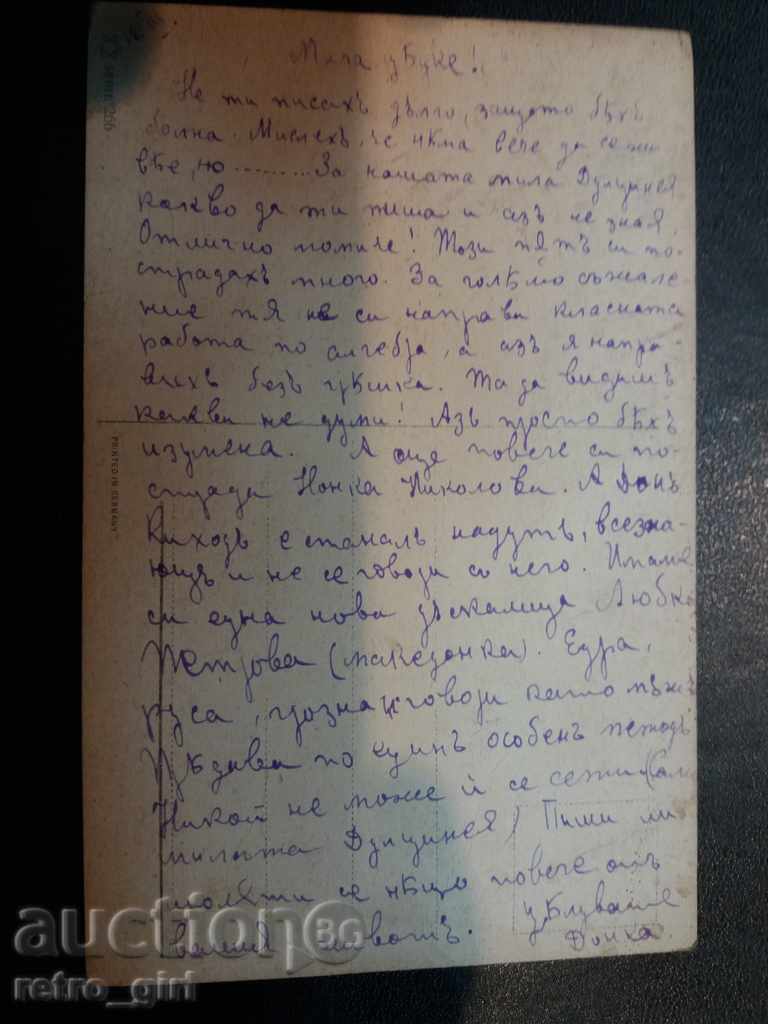 Мила цвѣке!
Не ти писахъ дълго, защото бѣхъ
болна. Мислехъ, че нѣма вече да се жи
вѣе, но ......... За нашата мила Дулцинея
какво да ти пиша и азъ не зная.
Отлично помниче! Този пѫтъ си по-
страдахъ много. За голѣмо съжале
ние тя не си направи класната
работа по алгебра, а азъ я напра-
вихъ безъ грѣшка. Та да видишъ
какви не думи! Азъ просто бѣхъ
изумена. А още повече си по-
стради Нонка Николова. А Донъ
Кихотъ е станалъ надутъ, всезна-
ющъ и не се говори съ него. Имаме
си една нова даскалица Любка
Петрова (македонка). Едра,
руса, грозна и говори като мѫжъ
Прѣдава по единъ особенъ методъ
Никой не може ѝ се сети (Само
милата Дулцинея) Пиши ми
моля ти се нѣщо повече отъ
вашия животъ. цѣлувамъ те
Донка.
PRINTED IN GERMANY
auction BG
retro_girl